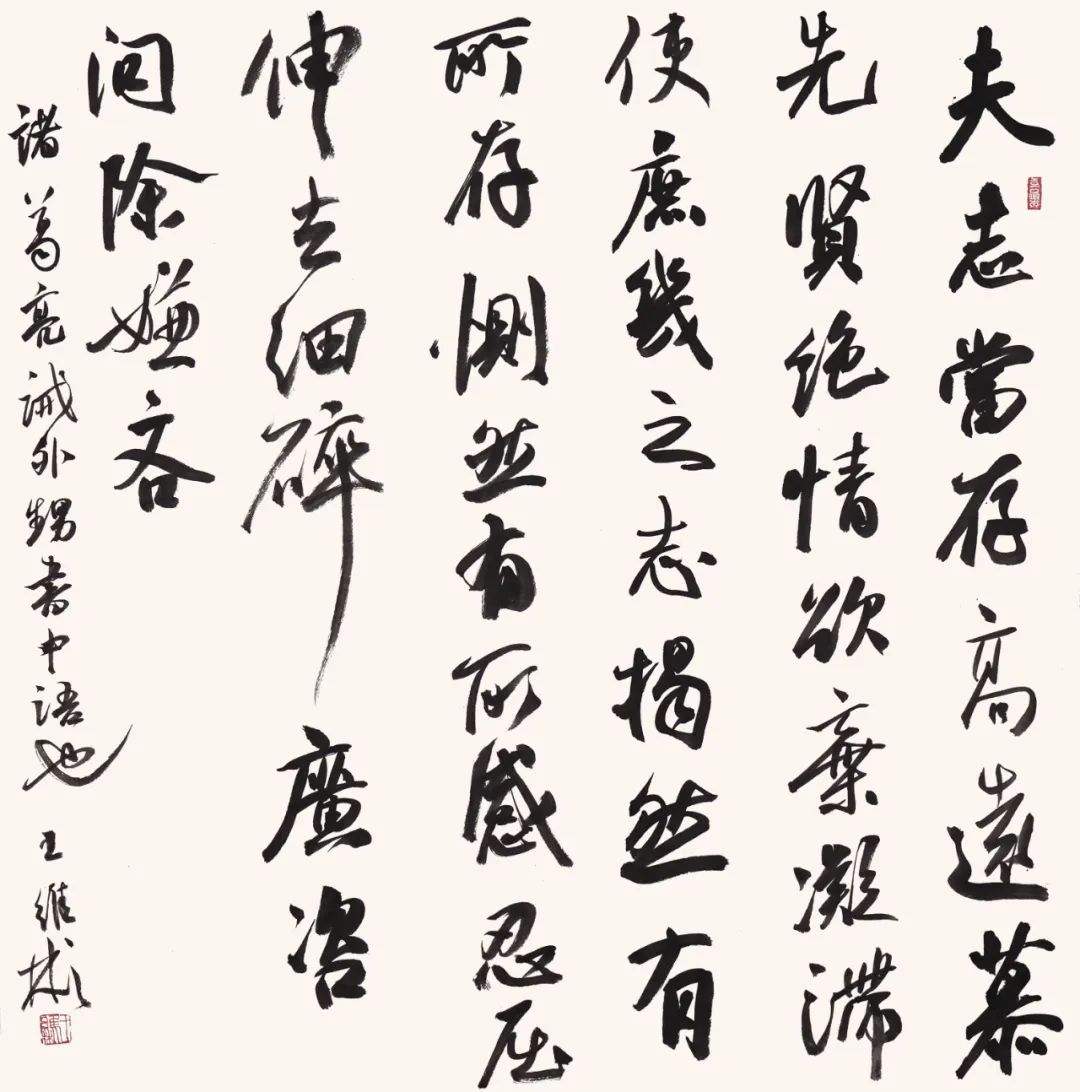 夫志當存高遠慕
先賢绝情欲棄凝滞
使庶幾之志揭然有
所存惻然有所感忍屈
伸去细碎廣咨
问除嫌吝
諸葛亮誡外甥書中語也 王維彬